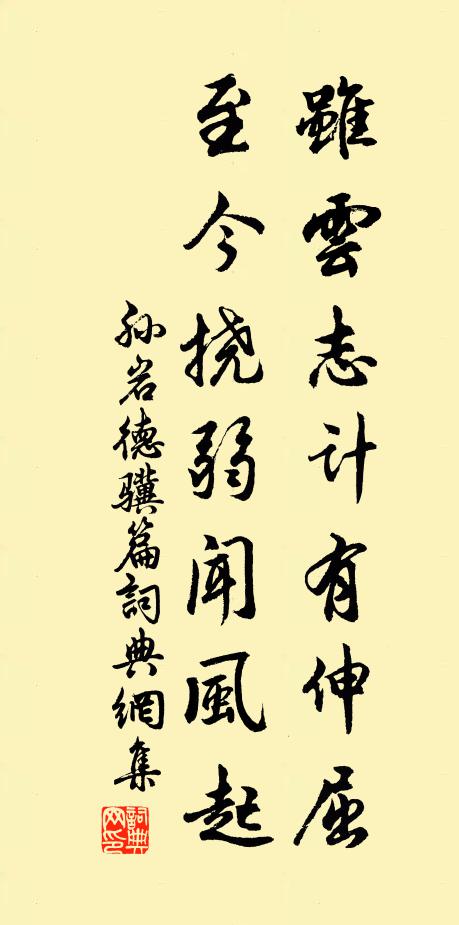 雖雲志計有伸屈
至今挠弱聞風起
孙岩德骥篇詞典網集
詞典网印